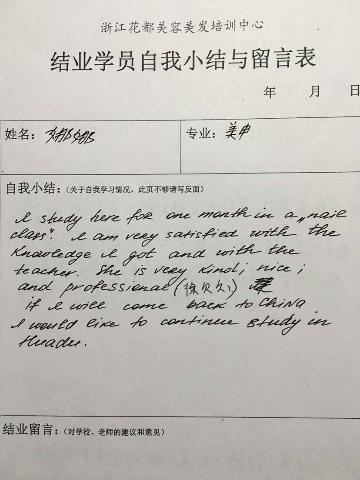 浙江花都美容美发培训中心
结业学员自我小结与留言表
年 月 日
姓名: 娜娜
专业: 美甲
自我小结:(关于自我学习情况,此页不够请写反面)
I study here for one month in a „nail
class". I am very satisfied with the
Knowledge I got and with the
teacher. She is very kind; nice;
and professional (徐贝贝)
if I will come back to China
I would like to continue study in
Huadu.
结业留言:(对学校、老师的建议和意见)